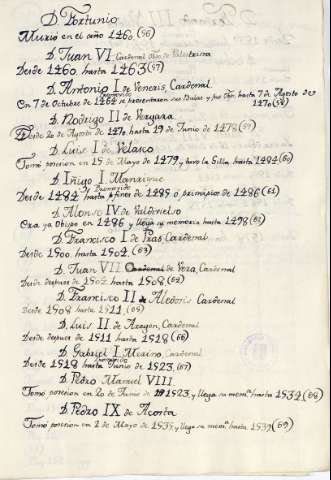 D. Fortunio
Murio en el año 1460 (56)
D. Juan VI Cardenal Obpo de Palestrina
Desde 1460 hasta 1463 (57)
D. Antonio I de Veneris, Cardenal
En 7 de Octubre de 1469 se presentaron sus Bulas y fue Obpo hasta 7 de Agosto de
1470 (58)
D. Rodrigo II de Vergara
Desde 20 de Agosto de 1470 hasta 19 de Junio de 1478 (59)
D. Luis I de Velasco
Tomó posesion en 15 de Mayo de 1479, y tuvo la Silla hasta 1484 (60)
D. Iñigo I Manrique
Desde 1484 hasta fines de 1485 ó principios de 1486 (61)
D. Alonso IV de Valdivielso
Era ya Obispo en 1486 y llega su memoria hasta 1498 (62)
D. Francisco I de Pras, Cardenal
Desde 1500 hasta 1504 (63)
D. Juan VII de Vera, Cardenal
Desde despues de 1504 hasta 1508 (64)
D. Francisco II de Aledosis Cardenal
Desde 1508 hasta 1511 (65)
D. Luis II de Aragon, Cardenal
Desde despues de 1511 hasta 1518 (66)
D. Gabriel I Merino, Cardenal
Desde 1518 hasta Junio de 1523 (67)
D. Pedro Manuel VIII
Tomó posesion en 20 de Junio de 1523, y llega su mem.ª hasta 1534 (68)
D. Pedro IX de Acosta
Tomó posesion en 2 de Mayo de 1535, y llega su mem.ª hasta 1539 (69)